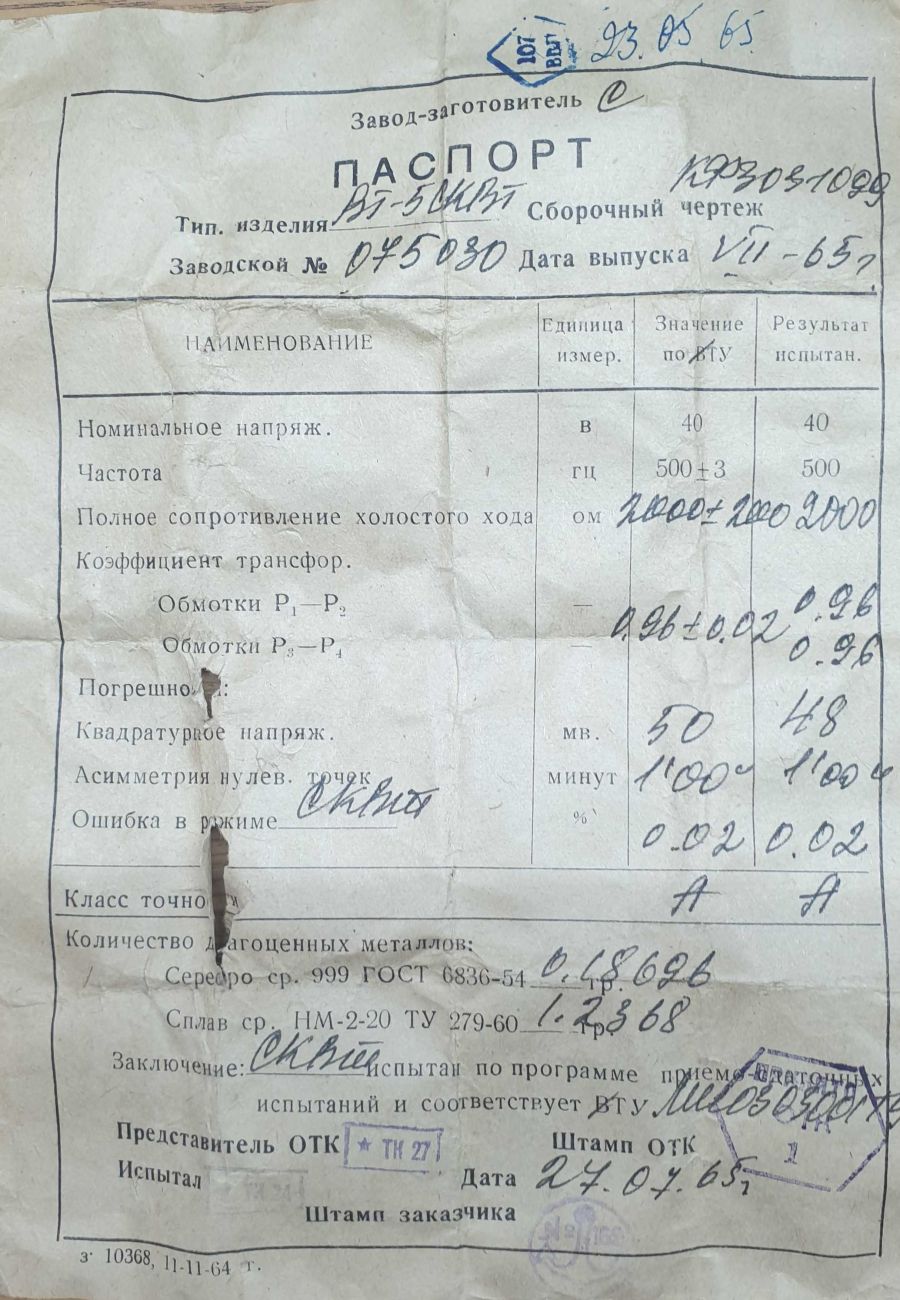 107
ВВП 23.05 65
Завод-заготовитель
ПАСПОРТ
Тип. изделия ВТ-5 СКВТ Сборочный чертеж
Заводской № 075030 Дата выпуска VII - 65г
НАИМЕНОВАНИЕ Единица измер. Значение по ВТУ Результат испытан.
Номинальное напряж. в 40 40
Частота гц 500±3 500
Полное сопротивление холостого хода ом 2000±200 2000
Коэффициент трансфор.
Обмотки Р₁—Р₂ — 0.96
0.96±0.02
Обмотки Р₃—Р₄ — 0.96
Квадратурное напряж. мв. 50 48
Асимметрия нулев. точек минут 1'00" 1'00"
Ошибка в режиме СКВт % 0.02 0.02
Класс точности А А
Количество драгоценных металлов:
Серебро ср. 999 ГОСТ 6836-54 0.18696 гр.
Сплав ср. НМ-2-20 ТУ 279-60 1.2368 гр.
Заключение: СКВт испытан по программе приемо-сдаточных
испытаний и соответствует ВТУ
Представитель ОТК ★ ТК 27 Штамп ОТК 1
Испытал Дата 27.07.65г
Штамп заказчика
з· 10368, 11-11-64 г.